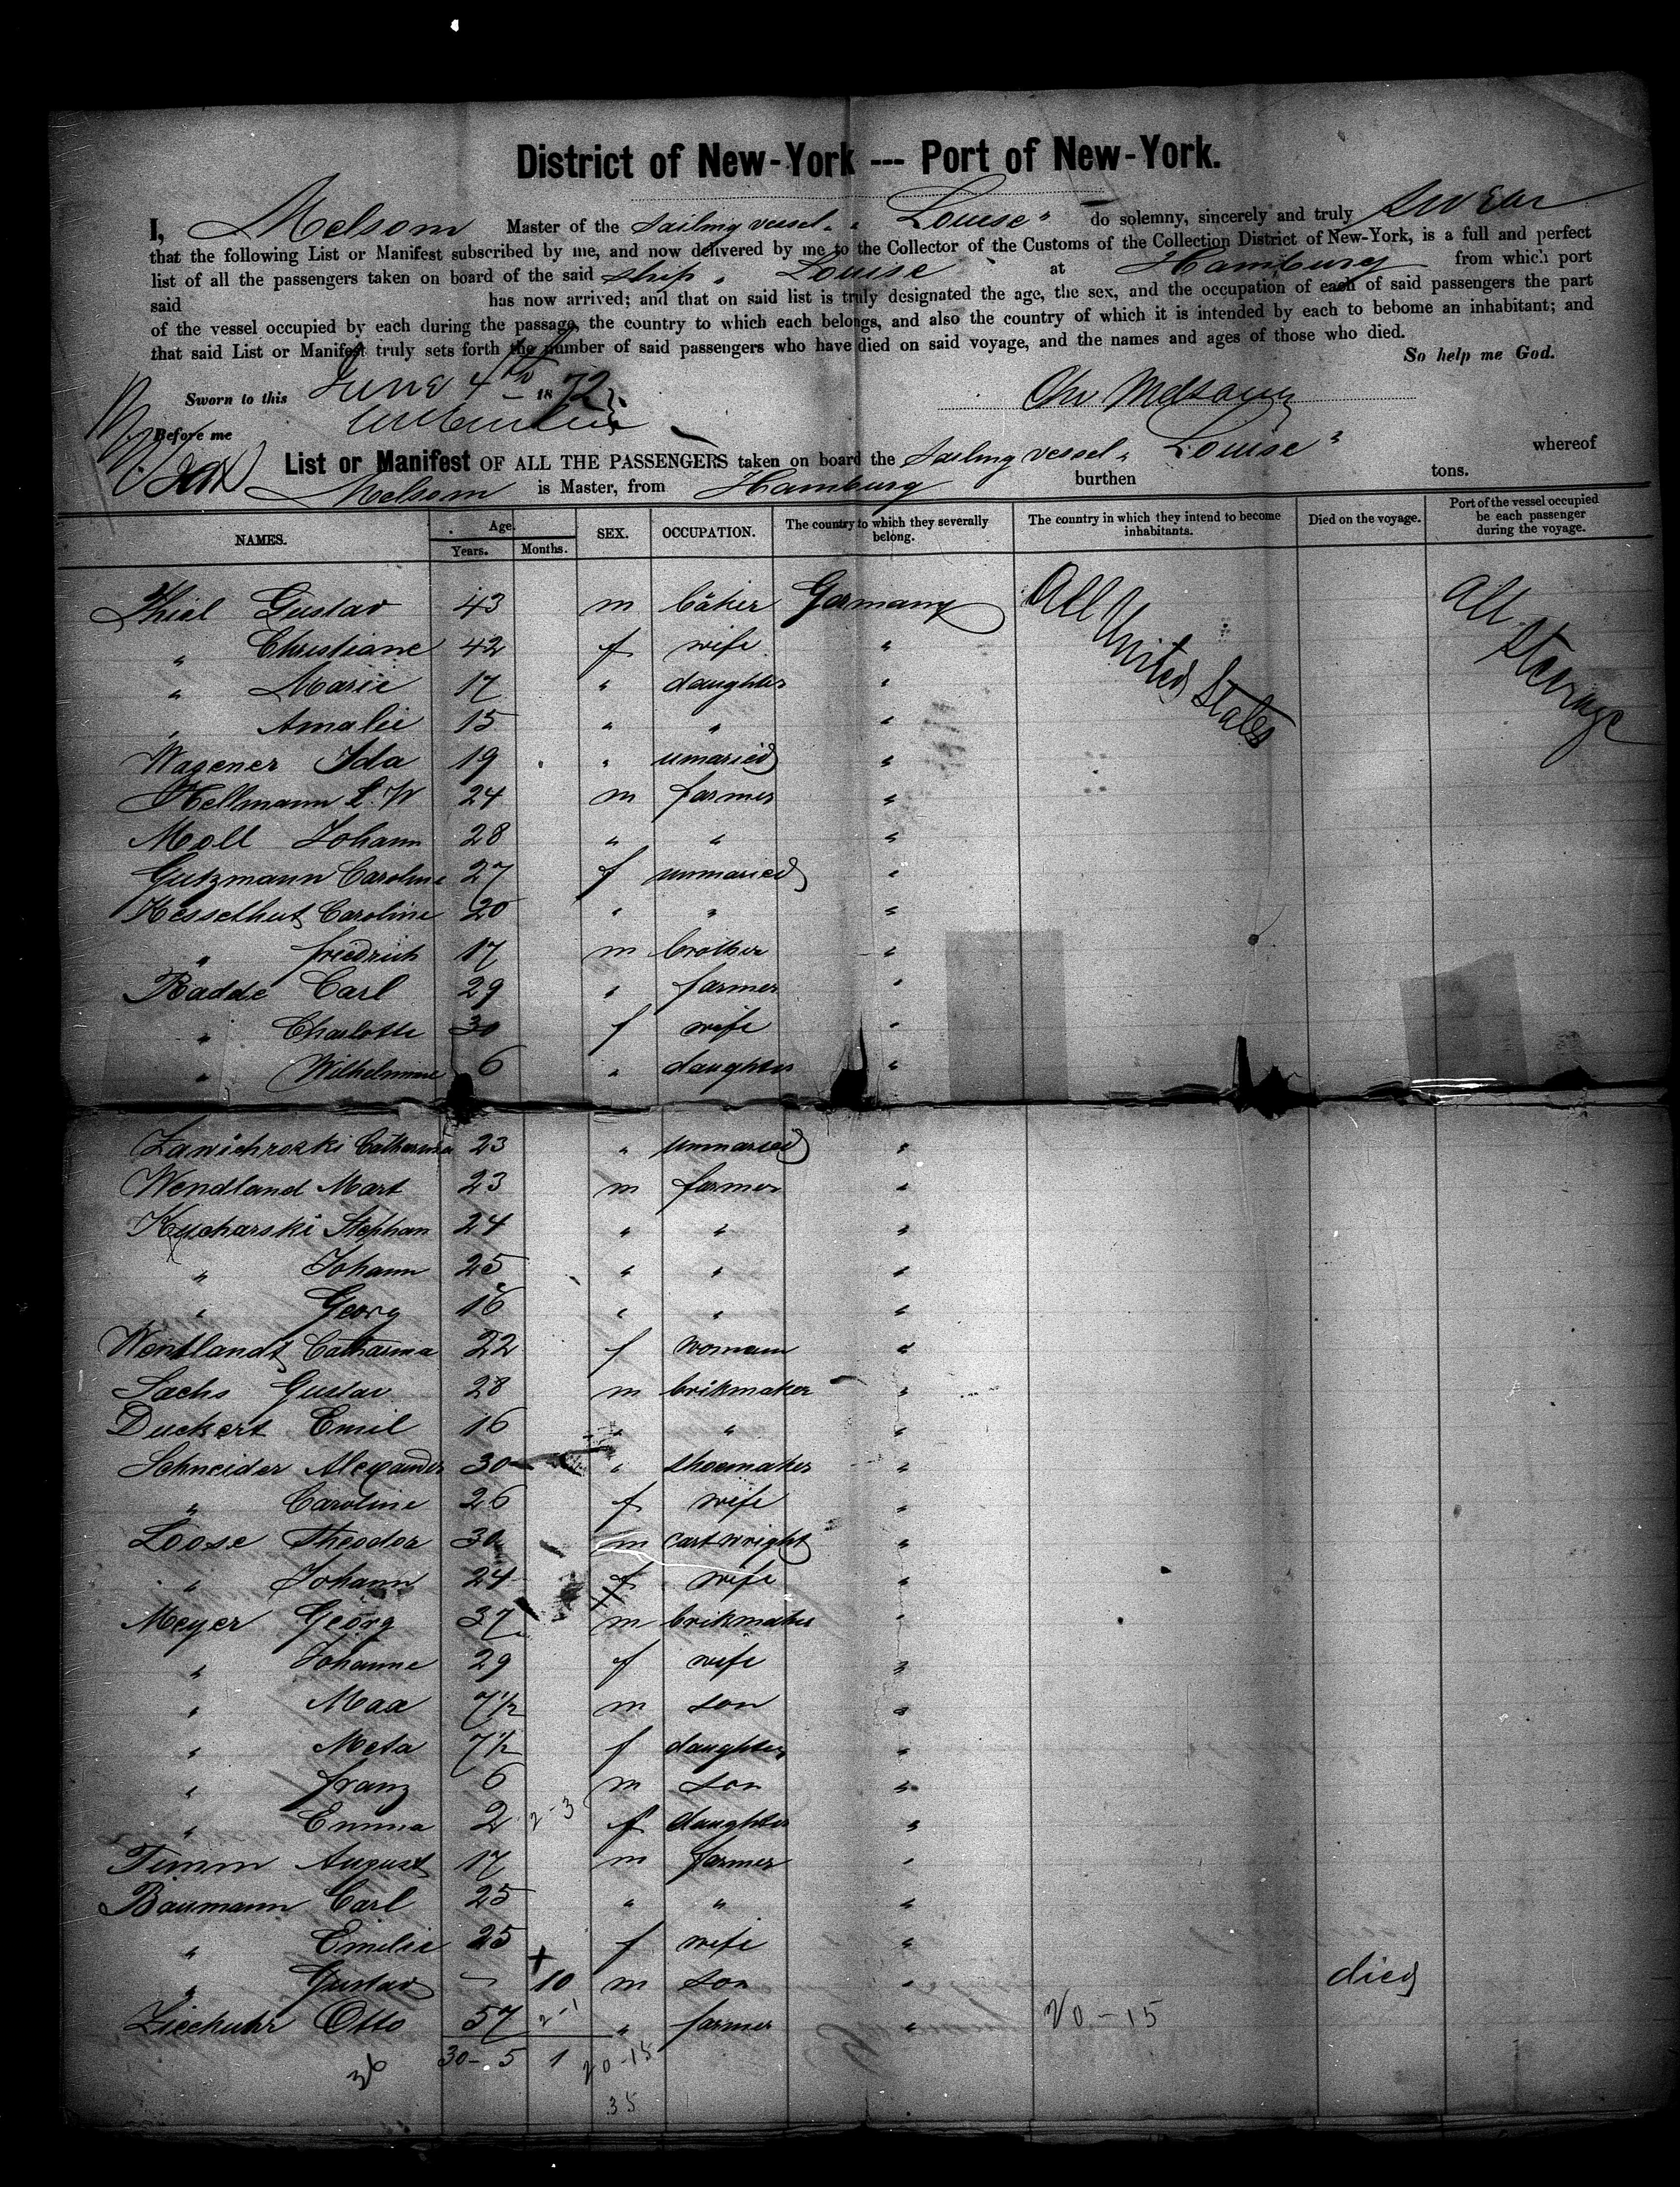 District of New-York --- Port of New-York.
I, Melsom Master of the sailing vessel „ Louise" do solemny, sincerely and truly swear
that the following List or Manifest subscribed by me, and now delivered by me to the Collector of the Customs of the Collection District of New-York, is a full and perfect
list of all the passengers taken on board of the said ship „ Louise at Hamburg from which port
said has now arrived; and that on said list is truly designated the age, the sex, and the occupation of each of said passengers the part
of the vessel occupied by each during the passage, the country to which each belongs, and also the country of which it is intended by each to bebome an inhabitant; and
that said List or Manifest truly sets forth the number of said passengers who have died on said voyage, and the names and ages of those who died.
So help me God.
Sworn to this June 4th 1872
Chr Melsom
Before me
List or Manifest OF ALL THE PASSENGERS taken on board the sailing vessel „ Louise" whereof
Melsom is Master, from Hamburg burthen tons.
NAMES. Age. Years. Months. SEX. OCCUPATION. The country to which they severally belong. The country in which they intend to become inhabitants. Died on the voyage. Port of the vessel occupied be each passenger during the voyage.
Thiel Gustav 43 m bäker Germany All United States All Steerage
„ Christiane 42 f wife "
„ Marie 17 " daughter "
„ Amalie 15 " " "
Wagener Ida 19 " unmaried "
Hellmann L. W 24 m farmer "
Moll Johann 28 " " "
Gutzmann Caroline 27 f unmaried "
Hesselhut Caroline 20 " " "
„ friedrich 17 m brother "
Radde Carl 29 " farmer "
„ Charlotte 30 f wife "
„ Wilhelmine 6 " daughter "
Catharina 23 " unmaried "
Wendland Mart 23 m farmer "
Kucharski Stephan 24 " " "
„ Johann 25 " " "
„ Georg 16 " " "
Wentlandt Catharina 22 f womann "
Sachs Gustav 28 m brikmaker "
Duckert Emil 16 " " "
Schneider Alexander 30 " shoemaker "
„ Caroline 26 f wife "
Loose Theodor 30 m cartwright "
„ Johann 24 f wife "
Meyer Georg 37 m brikmaker "
„ Johanne 29 f wife "
„ Max 7½ m son "
„ Meta 7½ f daughter "
„ franz 6 m son "
„ Emma 2 2-3 f daughter "
Timm August 17 m farmer "
Baumann Carl 25 " " "
„ Emilie 25 f wife "
„ Gustav - + 10 m son " died
Otto 57 2-1 " farmer " 20-15
36 30-5 1 20-15
35